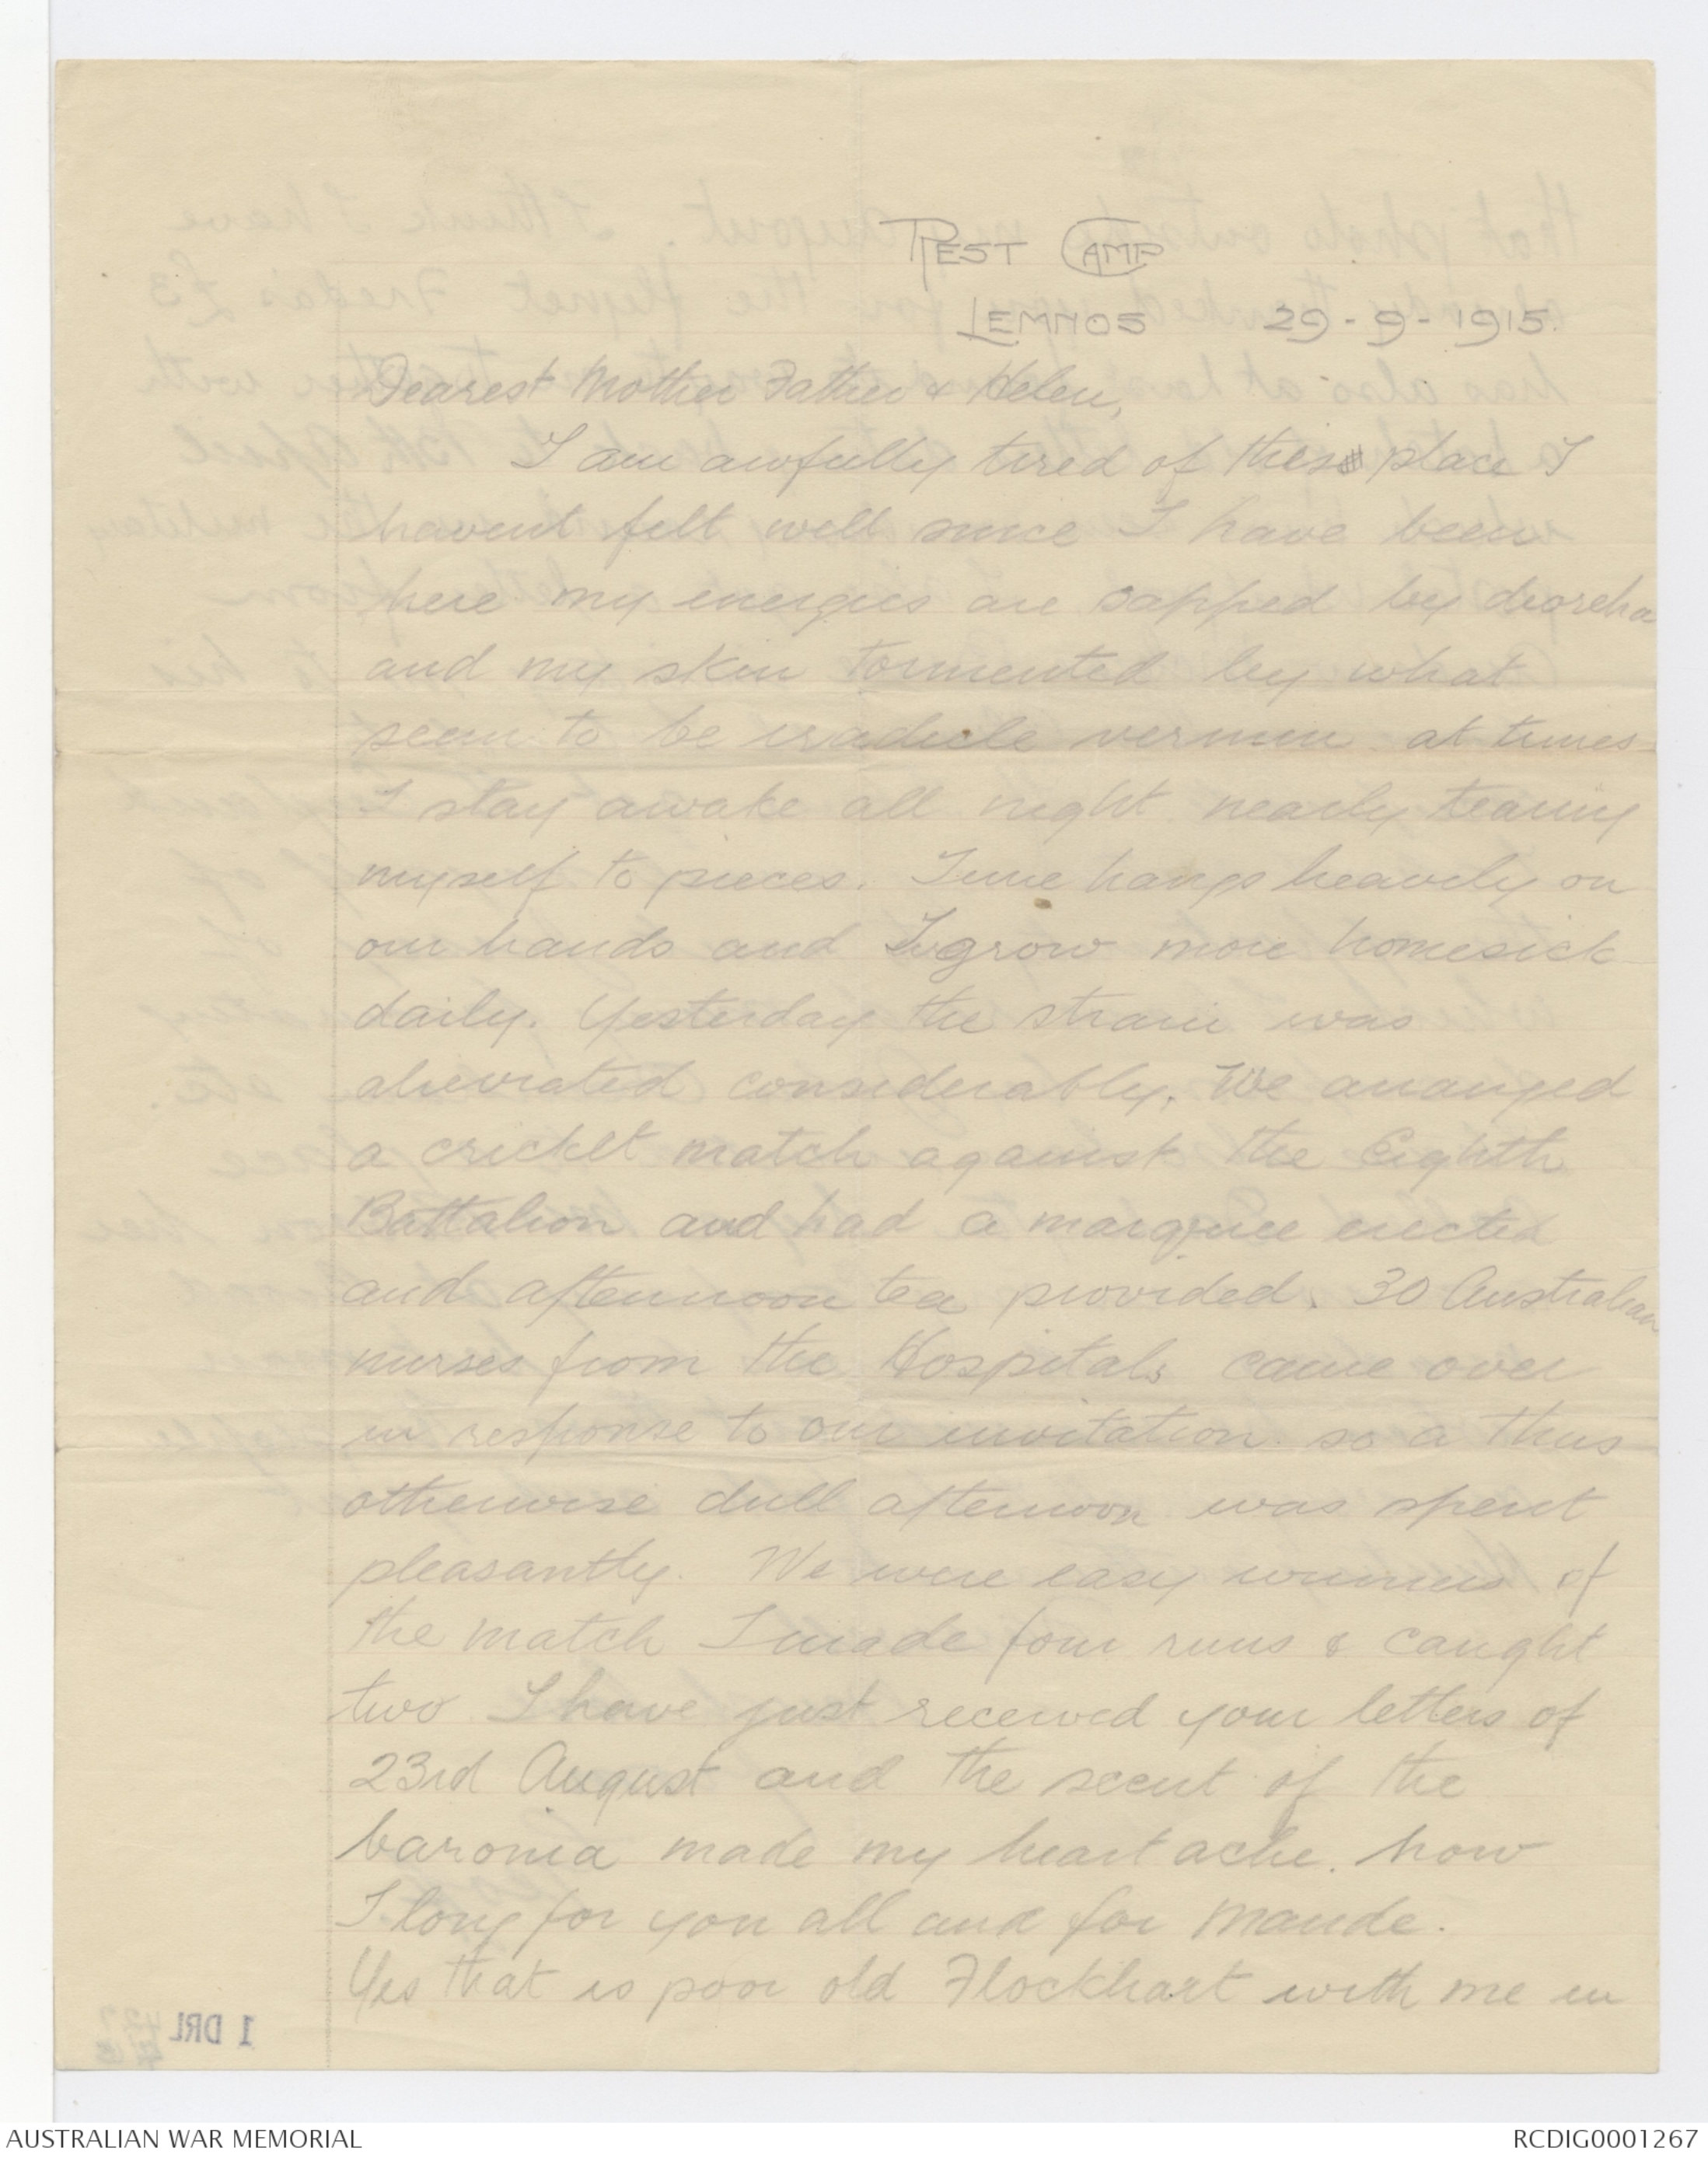 REST CAMP
LEMNOS 29-9-1915.
Dearest Mother Father & Helen,
I am awfully tired of this place I
havent felt well since I have been
here my energies are sapped by diorehа
and my skin tormented by what
seem to be iradicle vermin at times
I stay awake all night nearly tearing
myself to pieces. Time hangs heavily on
our hands and I grow more homesick
daily. Yesterday the strain was
aleviated considerably. We arranged
a cricket match against the Eighth
Battalion and had a marquee erected
and afternoon tea provided. 30 Australian
nurses from the Hospitals came over
in response to our invitation so a thus
otherwise dull afternoon was spent
pleasantly. We were easy winners of
the match I made four runs & caught
two I have just received your letters of
23rd August and the scent of the
baronia made my heart ache. how
I long for you all and for Maude.
Yes that is poor old Flockhart with me in
1 DRL
AUSTRALIAN WAR MEMORIAL
RCDIG0001267